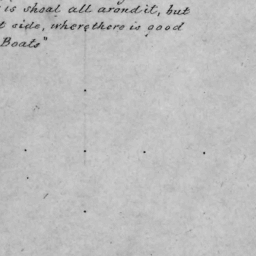 is shoal all arond it, but
side, where there is good
Boats"